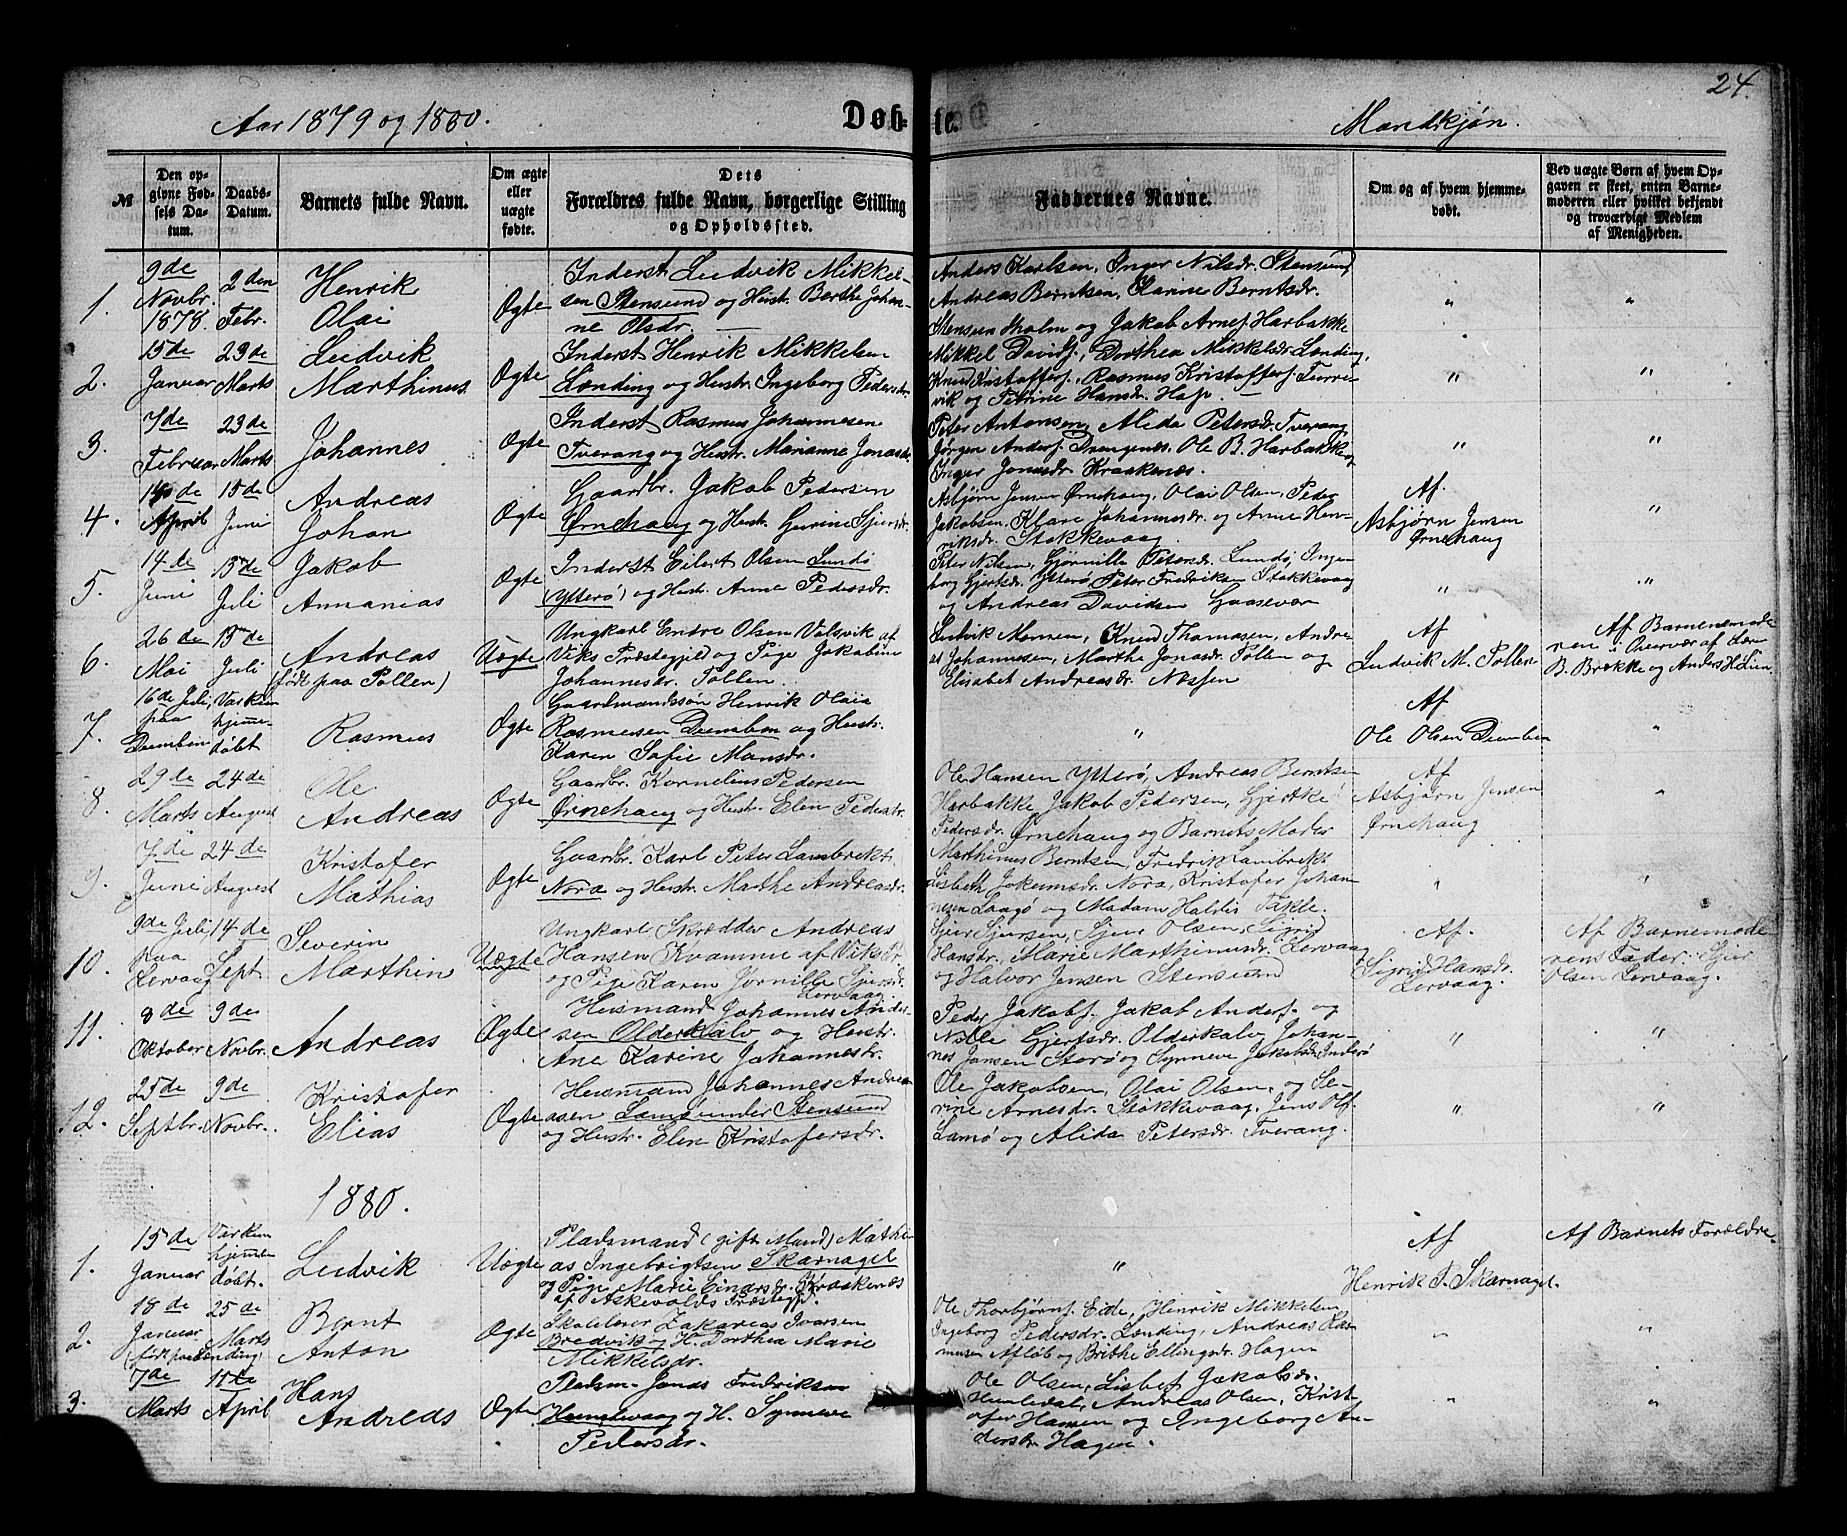 24.
Aar 1879 og 1880.
Døbte.
Mandkjøn.
№
Den opgivne Fødsels Datum.
Daabs-Datum.
Barnets fulde Navn.
Om ægte eller uægte fødte.
Dets Forældres fulde Navn, borgerlige Stilling og Opholdssted.
Faddernes Navne.
Om og af hvem hjemmedøbt.
Ved uægte Børn af hvem Opgaven er skeet, enten Barnemoderen eller hvilket bekjendt og troværdigt Medlem af Menigheden.
1. 9de Novbr. 1878. 2den Febr. Henrik Olai Ægte
Inderst Ludvik Mikkel-
sen Stensund og Hustr. Berthe Johan-
ne Olsdr.
Anders Karlsen, Inger Nilsdr. Stensund,
Andreas Berntsen, Karine Berntsdr.
Stensundholm og Jakob Arnes. Harbakke
" "
2. 15de Januar 23de Marts Ludvik Marthinus Ægte
Inderst Henrik Mikkelsen
Lønding og Hustr. Ingeborg Pedersdr.
Mikkel Davids., Dorthea Mikkelsdr. Lønding,
Knud Kristoffers., Rasmus Kristoffers.
vik og Petrine Hansdr.
" "
3. 7de Februar 23de Marts Johannes Ægte
Inderst Rasmus Johannesen
Tverang og Hustr. Marianne Jonasdr.
Peter Antonsen, Alida Petersdr. Tverang
Jørgen Anders. Drengenes. Ole B. Harbakke og
Inger Jonasdr. Kraakenæs.
" "
4. April 15de Juni Andreas Johan Ægte
Gaardbr. Jakob Pedersen
Ørnehaug og Hustr. Gurine Sjursdr.
Asbjørn Jensen Ørnehaug, Olai Olsen, Peder
Jakobsen, Klare Johannesdr. og Anne Hen-
riksdr. Stokkevaag
Af.
Asbjørn Jensen
Ørnehaug
"
5. 14de Juni 13de Juli Jakob Annanias Ægte
Inderst Eilert Olsen Lundø
(Ytterø) og Hustr. Anna Pedersdr.
Peter Nilsen, Gjørnille Petersdr. Lundø, Inge-
borg Gjertsdr. Ytterø Peter Fredriksen Stokkevaag
og Andreas Davidsen Gaasevær
" "
6. 26de Mai 13de Juli Andreas (født paa Pollen) Uægte
Ungkarl Endre Olsen Valsvik af
Viks Præstegjeld og Pige Jakobine
Johannesdr. Pollen.
Ludvik Monsen, Knud Thomasen, Andre-
as Johannesen, Marthe Jonasdr. Pollen og
Elisabet Andreasdr. Nossen
Af
Ludvik M. Pollen
Af Barnemode
ren i Overvær af Lær-
B. Brække og Anders
7. 16de Juli, paa Dumben Var kun hjemmedøbt Rasmus Ægte
Gaardmandssøn Henrik Olais
Rasmusen Dumben og Hustr.
Karen Sofie Monsdr.
"
Af
Ole Olsen Dumben
"
8. 29de Marts 24de August Ole Andreas Ægte
Gaardbr. Kornelius Pedersen
Ørnehaug og Hustr. Elen Pedersdr.
Ole Hansen Ytterø, Andreas Berntsen
Harbakke Jakob Pedersen, Gjertke
Pedersdr. Ørnehaug og Barnets Moder
Af
Asbjørn Jensen
Ørnehaug
"
9. 7de Juni 24de August Kristofer Mathias Ægte
Gaardbr. Karl Peter Lambrekts.
Nora og Hustr. Marthe Andreasdr.
Marthinus Berntsen, Fredrik Lambrekt
Lisbeth Jokumsdr. Nora, Kristofer Johan-
nesen Laagø og Madam Haldis Takle.
" "
10. 9de Juli, paa Lervaag 14de Sept Severin Marthin Uægte
Ungkarl Skrædder Andreas
Hansen Kvamme af Viks Pr.
og Pige Karen Jornille Sjursdr.
Lervaag
Sjur Sjursen, Sjur Olsen, Sigrid
Hansdr., Marie Marthinusdr. Lervaag
og Halvor Jensen Stensund
Af.
Sigrid Hansdr.
Lervaag.
Af Barnemode
rens Fader. Sjur
Olsen Lervaag.
11. 8de Oktober 9de Novbr. Andreas Ægte
Husmand Johannes Ander-
sen Olderkalv og Hustr.
Ane Karine Johannesdr.
Peder Jakobs. Jakob Anders. og
Nille Gjertsdr. Olderkalv, Johan-
nes Jansen Storø og Synneve Jakobsdr. Inderø
" "
12. 25de Septbr. 9de Novbr. Kristofer Elias Ægte
Husmand Johannes Andrea-
asen Lamø under Stensund
og Hustr. Elen Kristofersdr.
Ole Jakobsen, Olai Olsen, og Se-
rine Arnesdr. Stokkevaag, Jens Ols.
Lamø og Alida Petersdr. Tverang.
" "
1880.
1. 15de Januar Var kun hjemmedøbt. Ludvik Uægte
Pladsmand (gift Mand) Mathi-
as Ingebrigtsen Skarnagel
og Pige Marie Einarsdr. Kraakenæs
af Askevolds Præstegjd.
"
Af
Henrik P. Skarnagel.
Af Barnets Forældre.
2. 18de Januar (født paa Lønding) 25de Marts Bernt Anton Ægte
Skolelærer Zakarias Ivarsen
Bredvik og H. Dorthea Marie
Mikkelsdr.
Ole Thorbjørns. Eide, Henrik Mikkelsen
Ingeborg Pedersdr. Lønding, Andreas Ras-
musen Afløb og Brithe Ellingsdr. Hagen
" "
3. 7de Marts 11te April Hans Andreas Ægte
Pladsm. Jonas Fredriksen
Humlevaag og H. Synneve
Pedersdr.
Ole Olsen, Lisbet Jakobsdr.
Humledal, Andreas Olsen, Krist-
ofer Hansen og Ingeborg An-
dersdr. Hagen.
" "